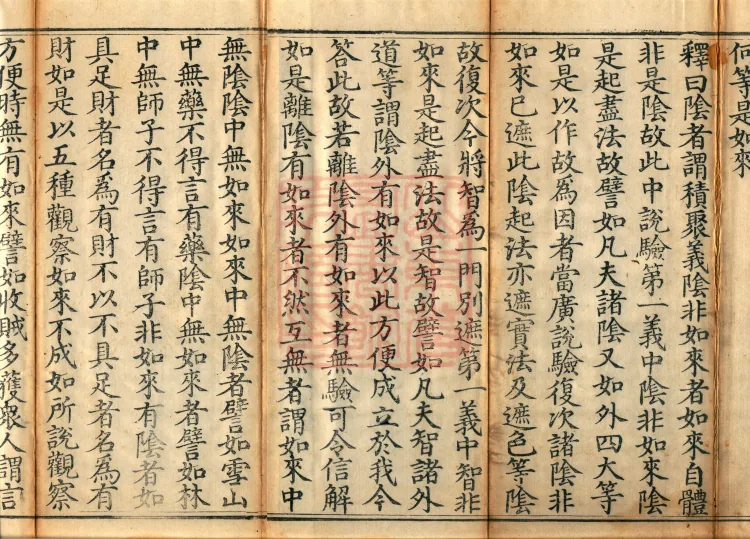 何等是如來
釋曰陰者謂積聚義陰非如來者如來自體
非是陰故此中說驗第一義中陰非如來陰
是起盡法故譬如凡夫諸陰又如外四大等
如是以作故為因者當廣說驗復次諸陰非
如來已遮此陰起法亦遮實法及遮色等陰
故復次今將智為一門別遮第一義中智非
如來是起盡法故是智故譬如凡夫智諸外
道等謂陰外有如來以此方便成立於我今
答此故若離陰外有如來者無驗可令信解
如是離陰有如來者不然互無者謂如來中
無陰陰中無如來如來中無陰者譬如雪山
中無藥不得言有藥陰中無如來者譬如林
中無師子不得言有師子非如來有陰者如
具足財者名為有財不以不具足者名為有
財如是以五種觀察如來不成如所說觀察
方便時無有如來譬如收賊多獲眾人謂言